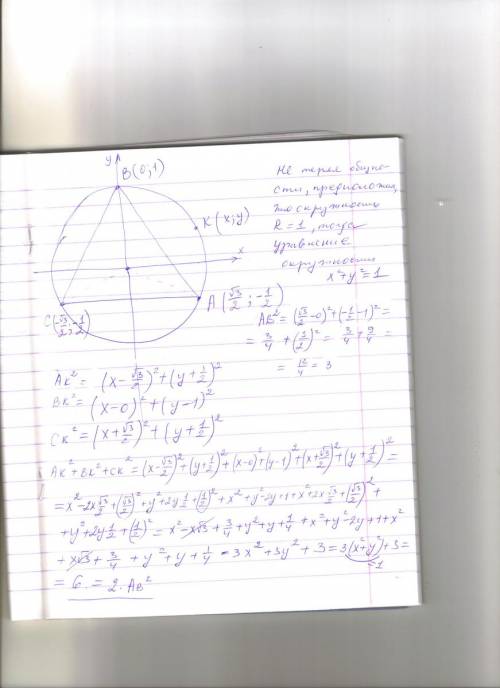 y
B(0;1)
K(x;y)
x
C(√3/2;-1/2)
A(√3/2;-1/2)
Не теряя общно-
сти, предположим,
что окружность
R=1, тогда
уравнение
окружности
x²+y²=1
AB²=(√3/2-0)²+(-1/2-1)²=
= 3/4 + ( )² = 3/4+9/4 =
= 12/4 = 3
AK² = (x-√3/2)²+(y+1/2)²
BK² = (x-0)²+(y-1)²
CK² = (x+√3/2)²+(y+1/2)²
AK²+BK²+CK² = (x-√3/2)²+(y+1/2)²+(x-0)²+(y-1)²+(x+√3/2)²+(y+1/2)²=
=x²-2x√3/2+(√3/2)²+y²+2y1/2+(1/2)²+x²+y²-2y+1+x²+2x√3/2+(√3/2)²+
+y²+2y1/2+(1/2)²= x²-x√3+3/4+y²+y+1/4+x²+y²-2y+1+x²
+x√3+3/4+y²+y+1/4=3x²+3y²+3=3(x²+y²)+3=
=1
= 6 = 2·AB²